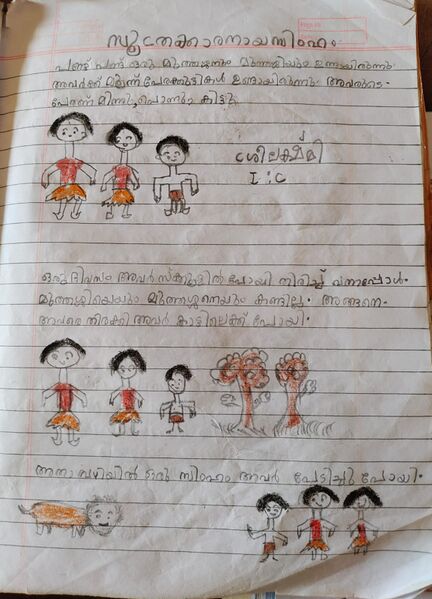 സൂത്രക്കാരനായസിംഹം
പണ്ട് പണ്ട് ഒരു മുത്തശ്ശനും മുത്തശ്ശിയും ഉണ്ടായിരുന്നു
അവർക്ക് മൂന്ന് പേരക്കുട്ടികൾ ഉണ്ടായിരുന്നു. അവരുടെ
പേരാണ് മിന്നു, പൊന്നും കിട്ടു.
ശ്രീലക്ഷ്മി
I : C
ഒരു ദിവസം അവർ സ്കൂളിൽ പോയി തിരിച്ച് വന്നപ്പോൾ.
മുത്തശ്ശിയെയും മുത്തശ്ശനെയും കണ്ടില്ല. അങ്ങനെ.
അവരെ തിരക്കി അവർ കാട്ടിലെക്ക് പോയി.
വഴിയിൽ ഒരു സിംഹം അവർ പേടിച്ചു പോയി.